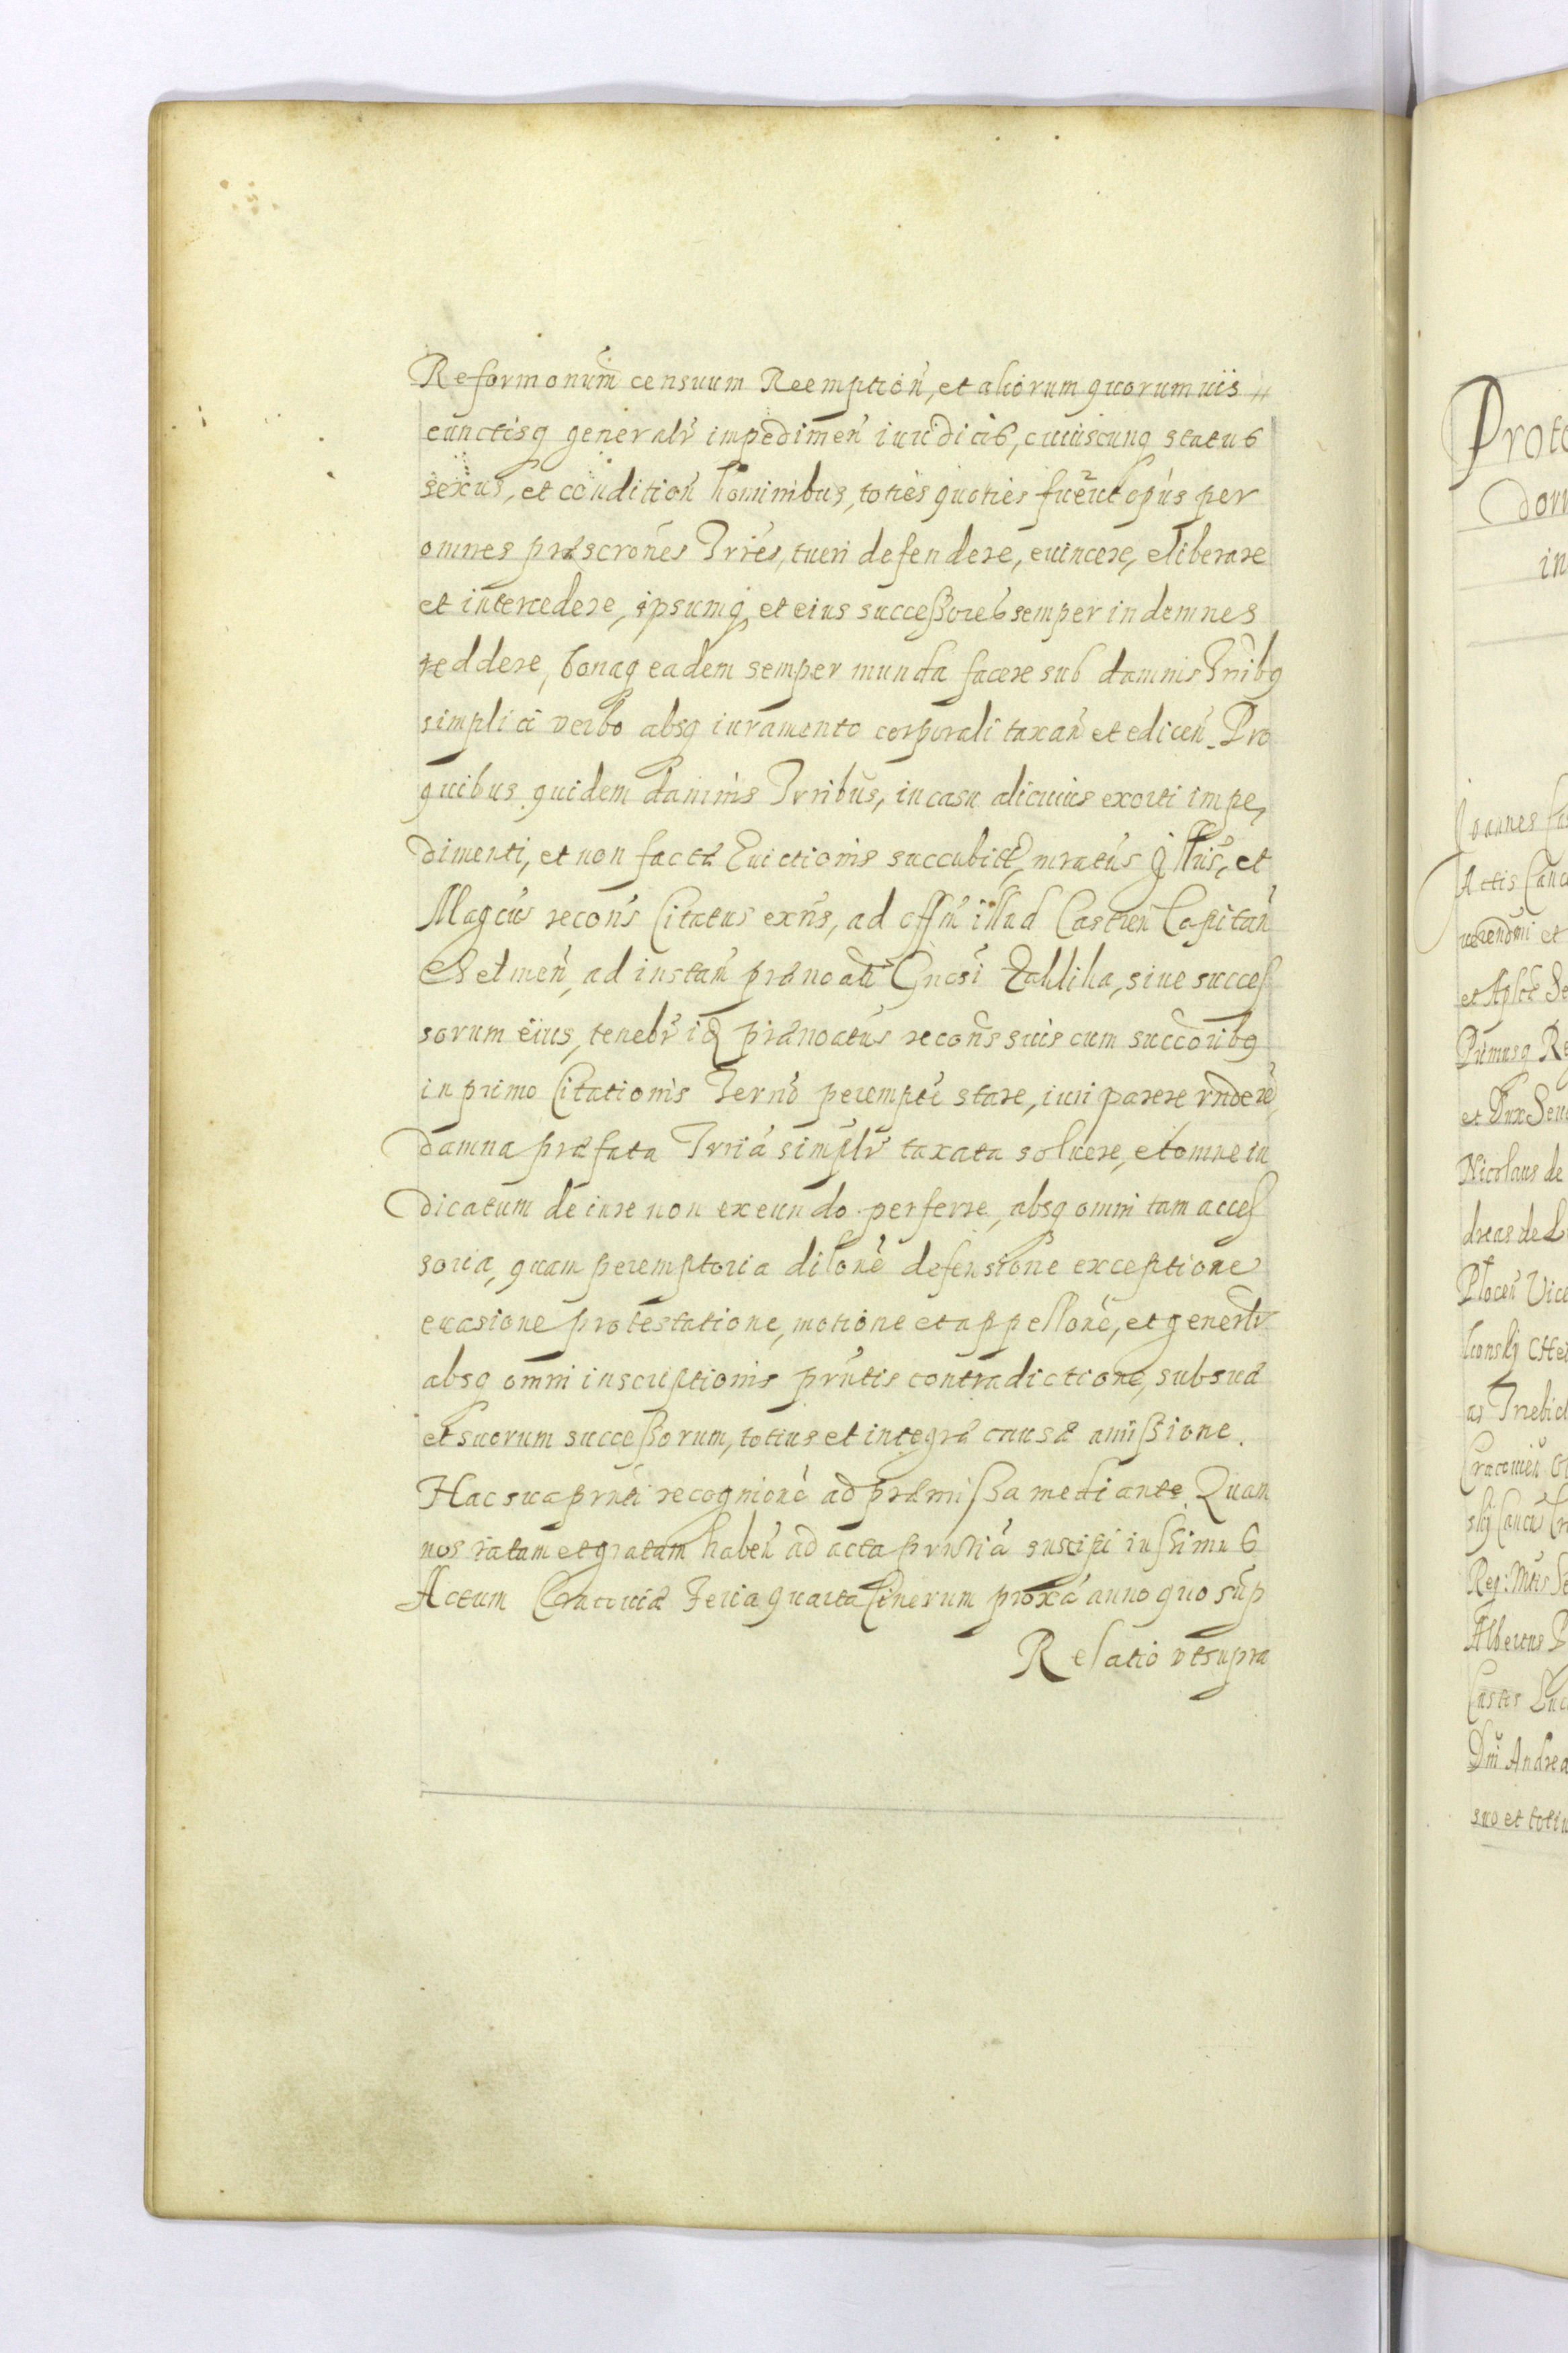 Reformonum censuum Reemption, et aliorum quorumuis
cunctisq generalr impedimen iuridicis, cuiuscunq status
sexus, et condition hominibus, toties quoties fuerit opus per
omnes præscrones Trres, tueri defendere, euincere, eliberare
et intercedere, ipsumq et eius successores semper indemnes
reddere, bonaq eadem semper munda facere sub damnis Trribq
simplici verbo absq iuramento corporali taxan et edicen. Pro
quibus quidem damnis Trribus, in casu alicuius exorti impe,
dimenti, et non factæ Euictionis succubitæ, mratus Illus, et
Magcus recons Citatus exns, ad offm illud Castren Capitan
ad instan prænoati Gnosi sive succes
sorum eius, tenebr id prænoatus recons suis cum succoribq
in primo Citationis Termo perempte stare, iuri parere rndere
damna præfata Trria simplr taxata soluere, et omne iu
dicatum de iure non exeundo perferre, absq omni tam acces
soria, quam peremptoria dilone defensione exceptione
euasione protestatione, motione et appellone, et generalr
absq omni inscriptionis prntis contradictione, sub suæ
et suorum successorum, totius et integræ causæ amissione.
Hac sua prnti recognione ad præmissa mediante. Quam
nos ratam et gratam haben ad acta prntia suscipi iussimus
Actum Cracouiæ Feria quarta Cinerum proxa anno quo sup
Relatio vt supra
Prot
dom
in
Joannes
Actis Canc
reuerendmi et
et Aplcæ Se
Primusq Re
et Dux Seu
Nicolaus de
dreas de L
Plocen Vice
as Trzebic
Cracouien
Reg: Mtis Se
Albertus
Dni Andrea
suo et totiu